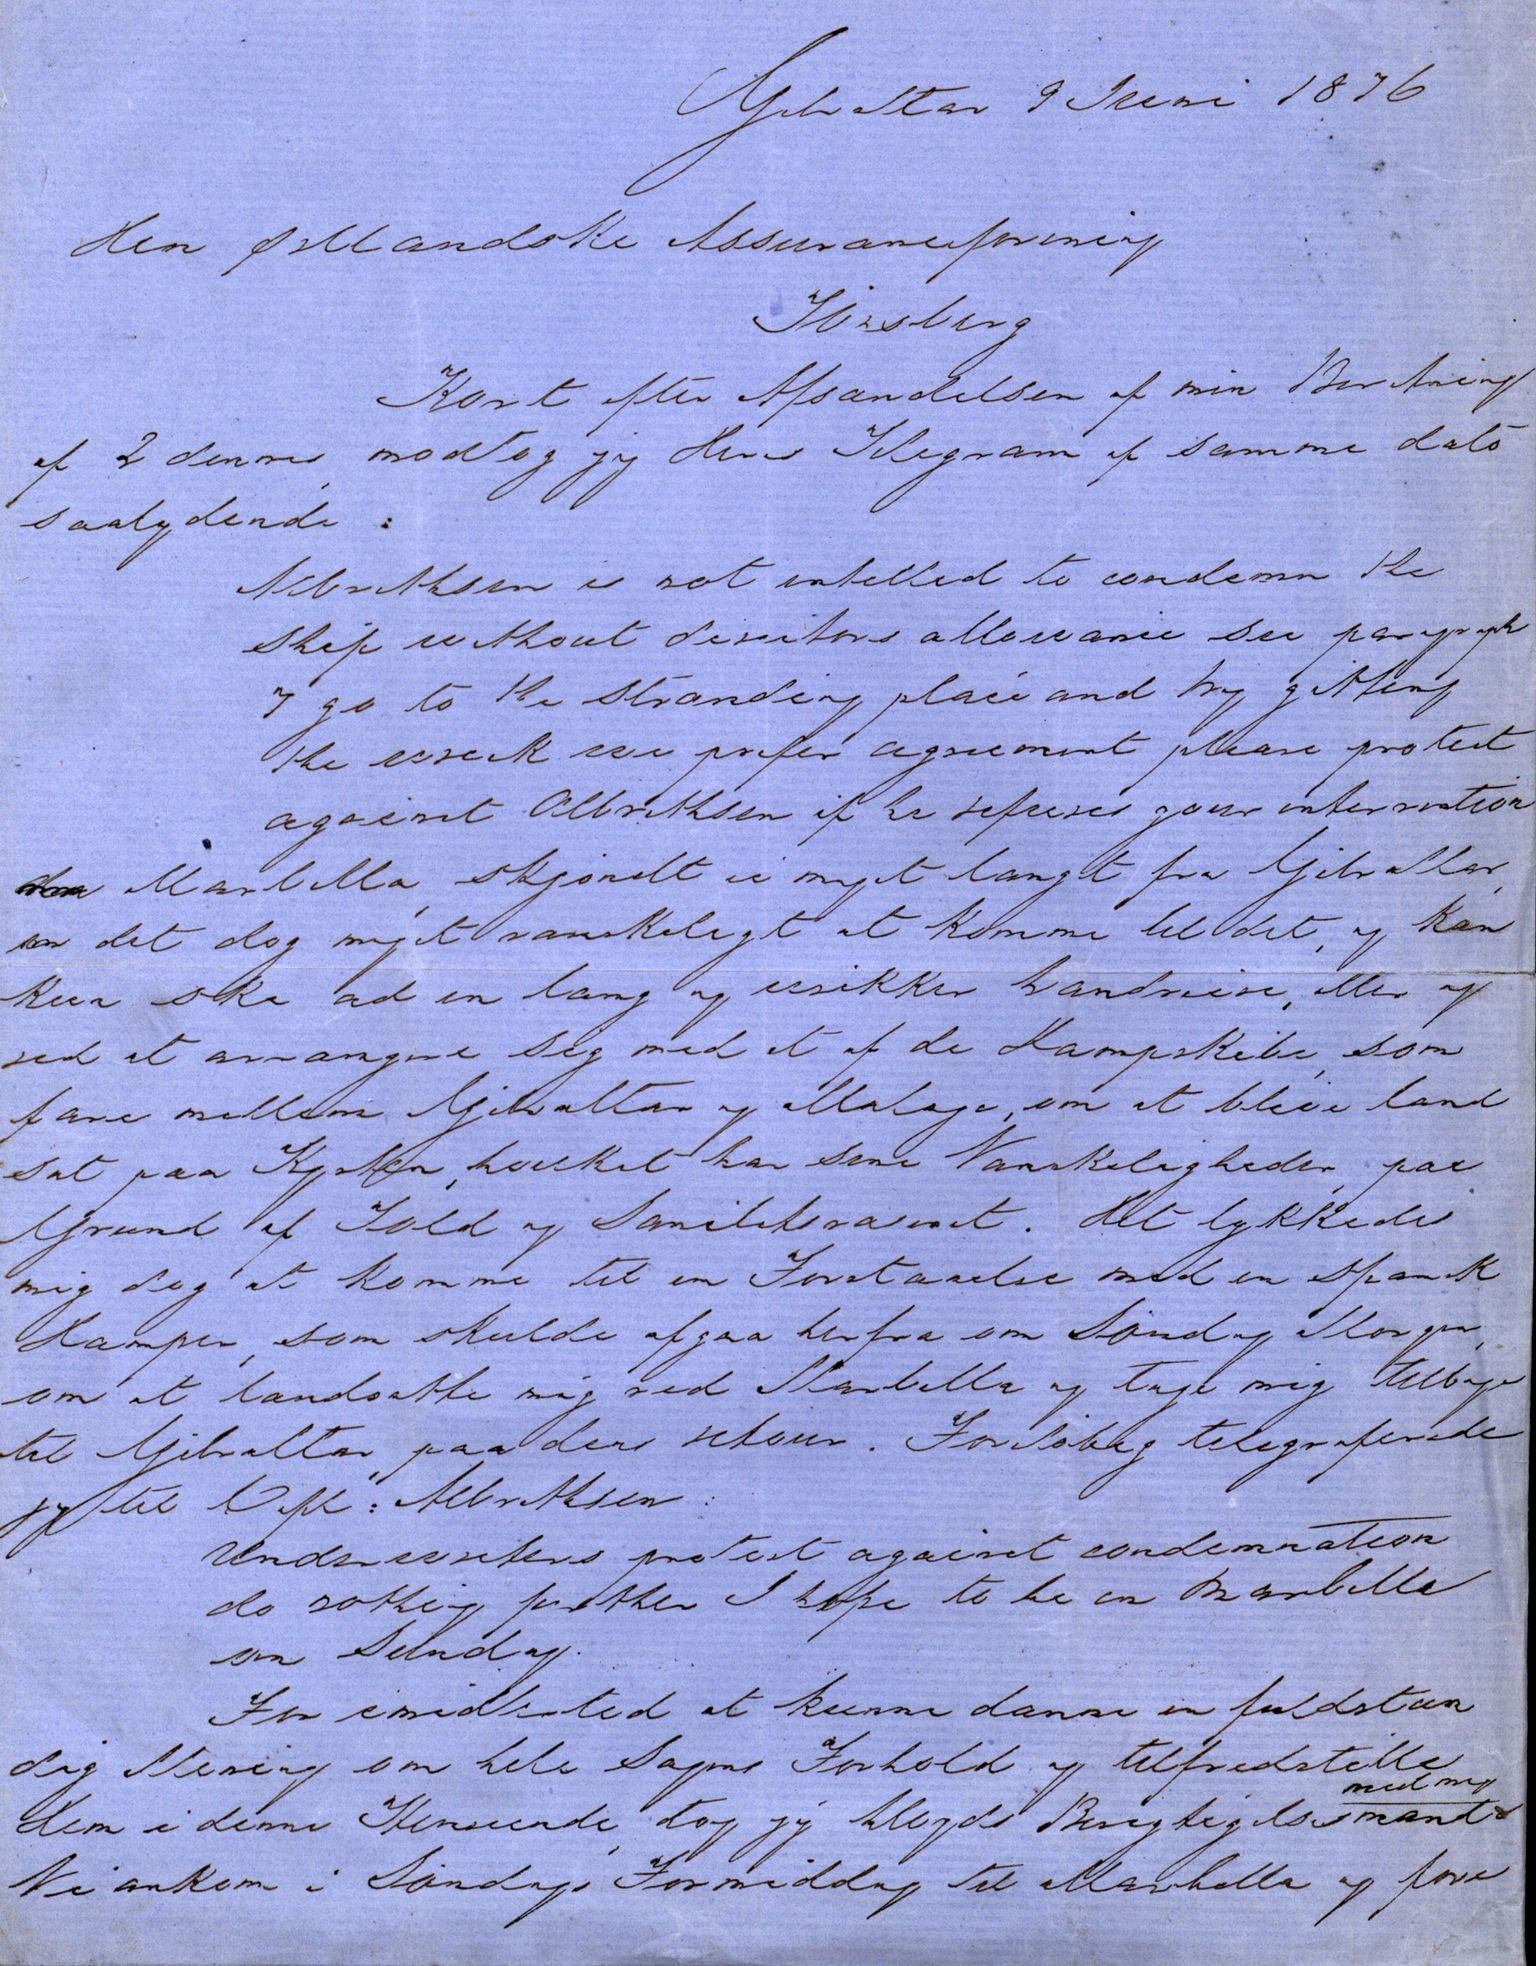 Gibraltar 9 Juni 1876
Den Østlandske Assuranceforening
Tönsberg
Kort efter Afsendelsen af min Beretning
af 2 dennes, modtog jeg Deres Telegram af samme dato
saalydende :
Albrethsen is not entitled to condemn the
ship without directors allowance see paragraph
7 go to the stranding place and try getting
the wreck we prefer agreement please protest
against Albrethsen if he refuses your intervention
Marbella, skjöndt ei meget langt fra Gibraltar,
er det dog meget vanskeligt at komme til det, og kan
kun ske ad en lang og usikker Landreise, eller og
ved at arrangere sig med et af de Dampskibe, som
fare mellem Gibraltar og Malaga, om at blive land
sat paa Kysten, hvilket har sine Vanskeligheder, paa
Grund af Told og Sanitetsvæsnet. Det lykkedes
mig dog at komme til en Forstaaelse med en spansk
Damper, som skulde afgaa herfra om Söndag Morgen,
om at landsætte mig ved Marbella og tage mig tilbage
til Gibraltar, paa dens retour. Forelöbig telegraferede
jeg til Capt : Albrethsen :
Underwriters protest against condemnation
do nothing further I hope to be in Marbella
on Sunday.
For imidlertid at kunne danne en fuldstæn
dig Mening om hele Sagens Forhold og tilfredsstille
med mig
Dem i denne Henseende, tog jeg Lloyds Besigtigelsesmand
Vi ankom i Söndags Formiddag til Marbella og fore